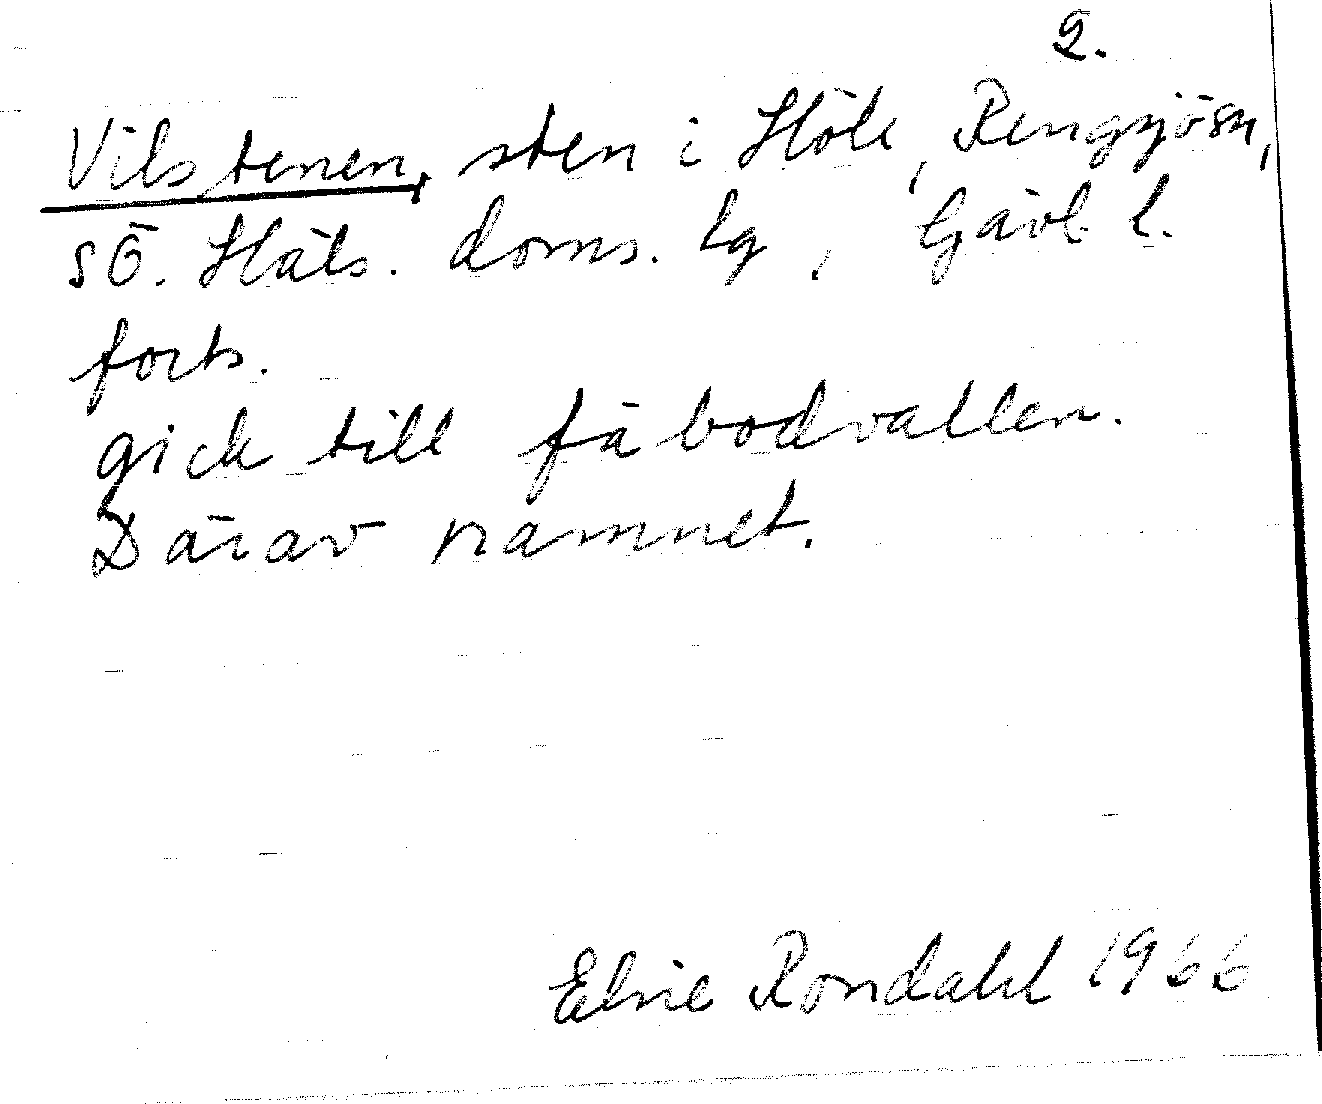 2.
Vilstenen, sten i Höle, Rengsjösn,
sö. Häls. doms. lg, Gävl. l.
forts.
gick till fäbodvallen.
Därav namnet.
Elsie Rondahl 1966